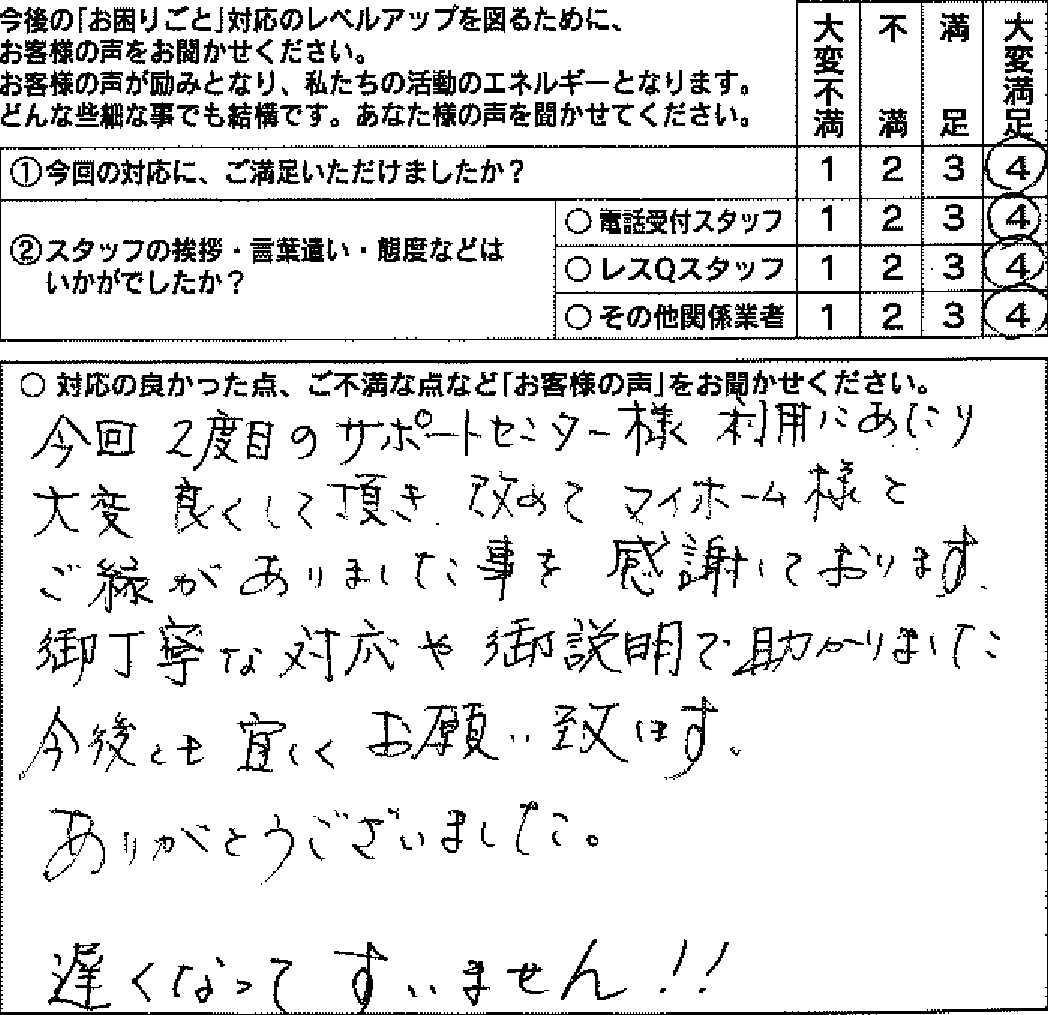 今後の「お困りごと」対応のレベルアップを図るために、
お客様の声をお聞かせください。
お客様の声が励みとなり、私たちの活動のエネルギーとなります。
どんな些細な事でも結構です。あなた様の声を聞かせてください。
大変不満 不満 満足 大変満足
①今回の対応に、ご満足いただけましたか? 1 2 3 4
②スタッフの挨拶・言葉遣い・態度などは
いかがでしたか?
○電話受付スタッフ 1 2 3 4
○レスQスタッフ 1 2 3 4
○その他関係業者 1 2 3 4
○ 対応の良かった点、ご不満な点など「お客様の声」をお聞かせください。
今回 2度目のサポートセンター様 利用にあたり
大変 良くして頂き 改めて マイホーム様と
ご縁がありました事を 感謝しております。
御丁寧な対応や 御説明で助かりました
今後とも 宜しくお願い致します。
ありがとうございました。
遅くなってすいません!!